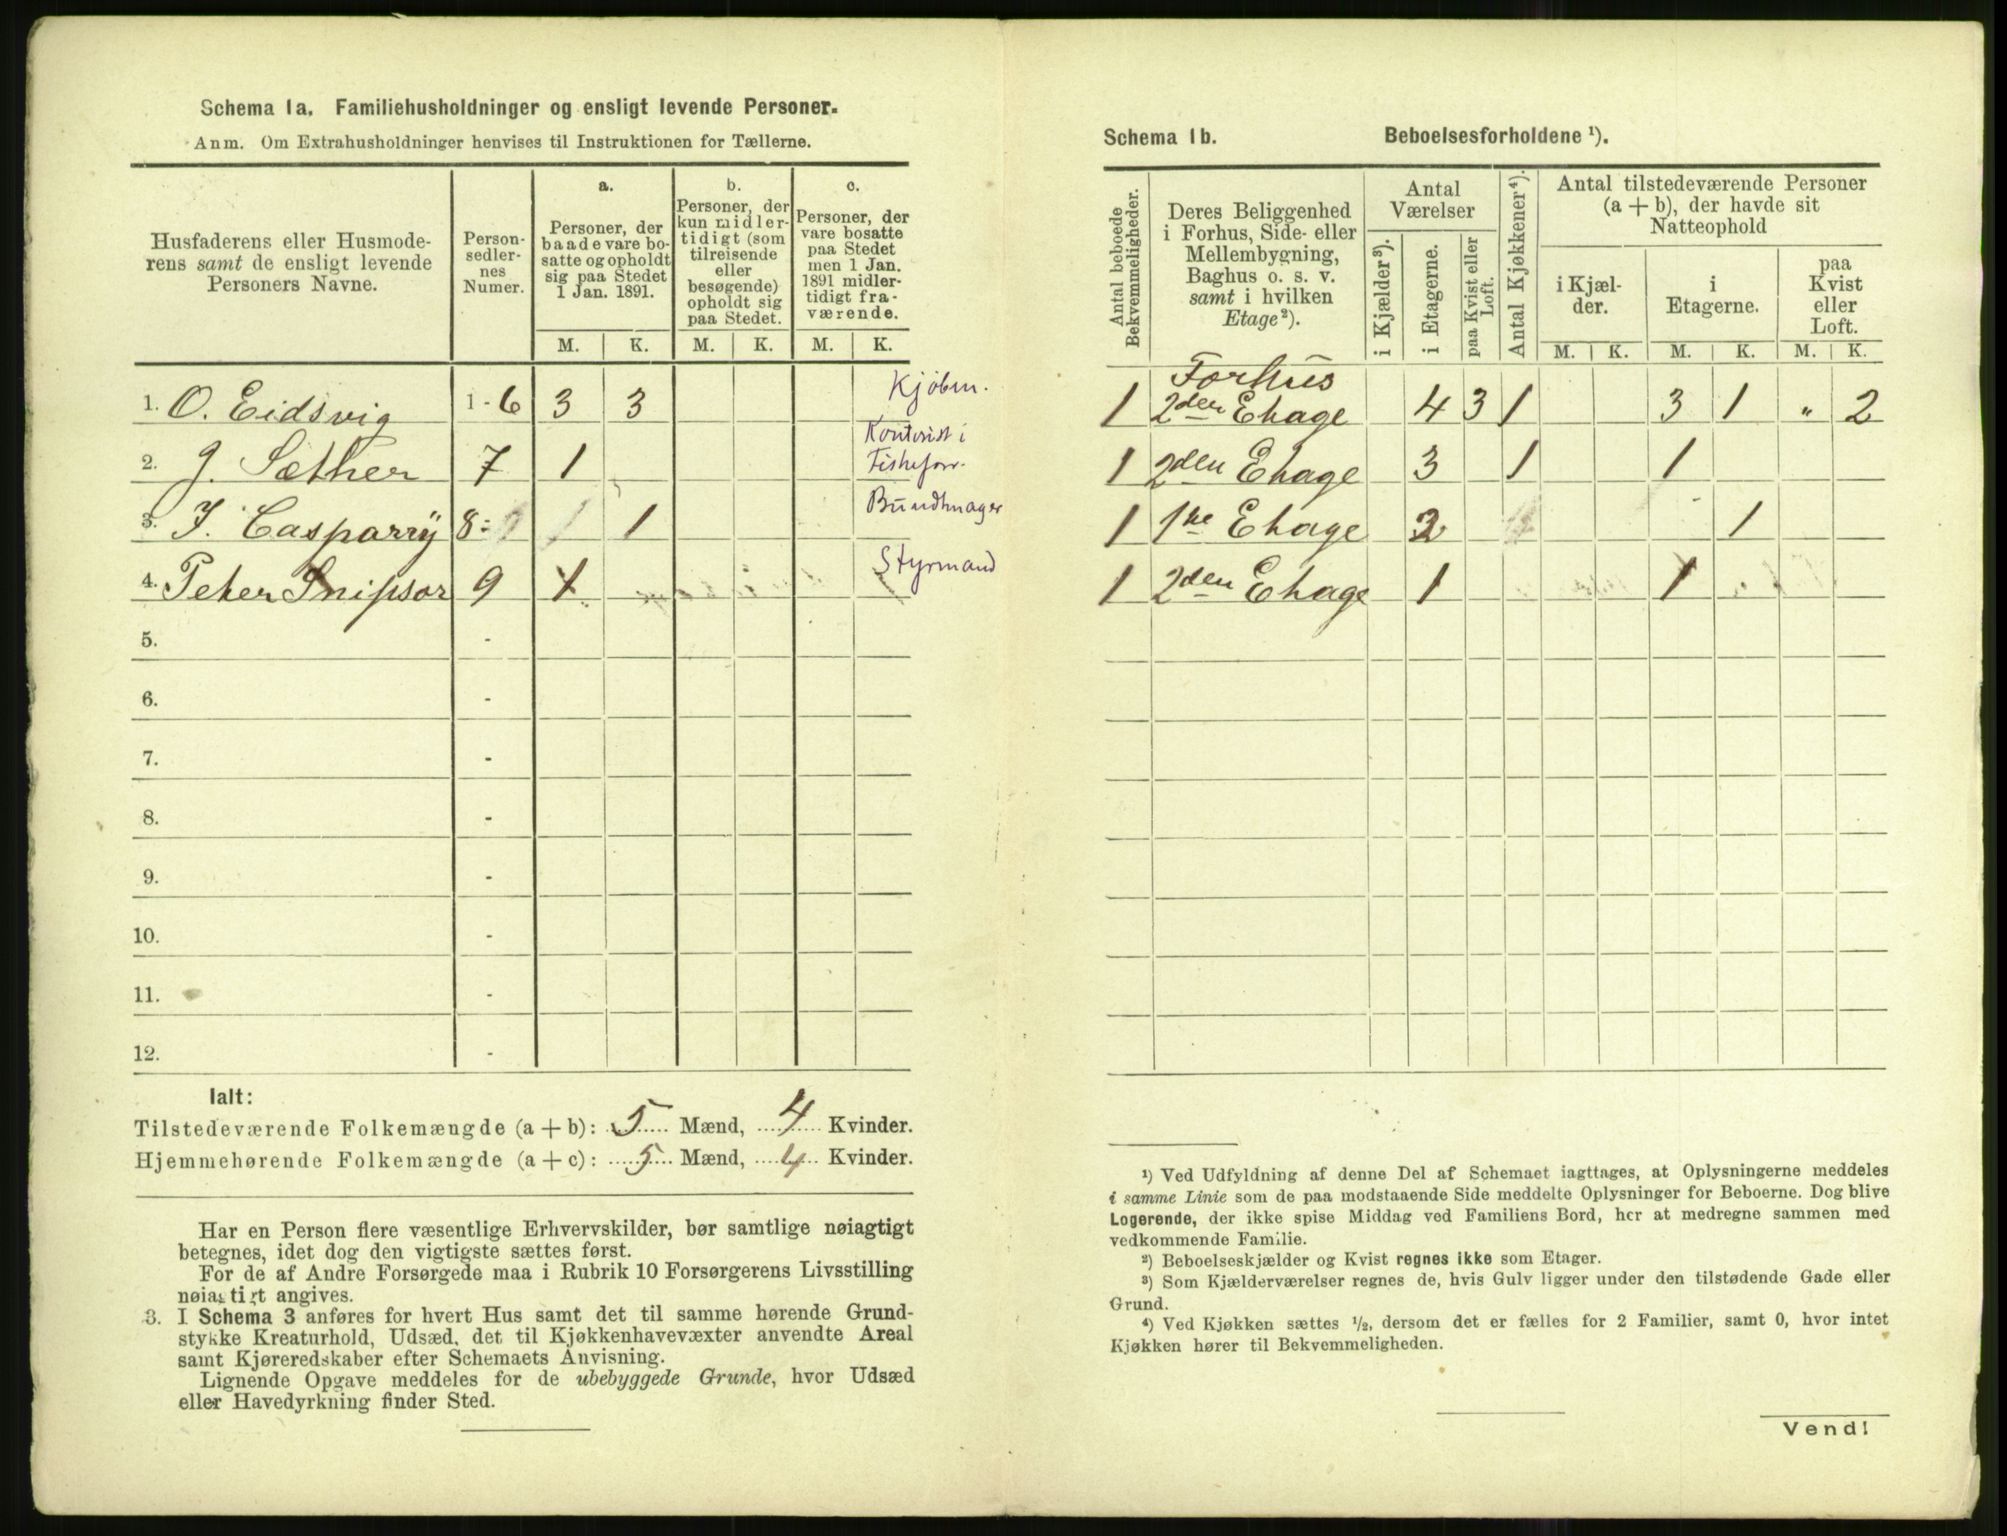 Schema 1a. Familiehusholdninger og ensligt levende Personer.
Anm. Om Extrahusholdninger henvises til Instruktionen for Tællerne.
Husfaderens eller Husmode-
rens samt de ensligt levende
Personers Navne.
Person-
sedler-
nes
Numer.
a.
Personer, der
baade vare bo-
satte og opholdt
sig paa Stedet
1 Jan. 1891.
b.
Personer, der
kun midler-
tidigt (som
tilreisende
eller
besøgende)
opholdt sig
paa Stedet.
c.
Personer, der
vare bosatte
paa Stedet
men 1 Jan.
1891 midler-
tidigt fra-
værende.
M. K. M. K. M. K.
1. O. Eidsvig 1-6 3 3 Kjøbm.
2. J. Sæther 7 1 Kontorist i
Fiskeforr.
3. J. Casparrÿ 8 - 1 Bundtmager
4. Peter Snipsør 9 1 Styrmand
5. -
6. -
7. -
8. -
9. -
10. -
11. -
12. -
Ialt:
Tilstedeværende Folkemængde (a + b): 5 Mænd, 4 Kvinder.
Hjemmehørende Folkemængde (a + c): 5 Mænd, 4 Kvinder.
Har en Person flere væsentlige Erhvervskilder, bør samtlige nøiagtigt
betegnes, idet dog den vigtigste sættes først.
For de af Andre Forsørgede maa i Rubrik 10 Forsørgerens Livsstilling
nøiagtigt angives.
3. I Schema 3 anføres for hvert Hus samt det til samme hørende Grund-
stykke Kreaturhold, Udsæd, det til Kjøkkenhavevæxter anvendte Areal
samt Kjøreredskaber efter Schemaets Anvisning.
Lignende Opgave meddeles for de ubebyggede Grunde, hvor Udsæd
eller Havedyrkning finder Sted.
Schema 1b. Beboelsesforholdene ¹).
Antal beboede
Bekvemmeligheder.
Deres Beliggenhed
i Forhus, Side- eller
Mellembygning,
Baghus o. s. v.
samt i hvilken
Etage²).
Antal
Værelser
i Kjælder³).
i Etagerne.
paa Kvist eller
Loft.
Antal Kjøkkener⁴).
Antal tilstedeværende Personer
(a + b), der havde sit
Natteophold
i Kjæl-
der.
i
Etagerne.
paa
Kvist
eller
Loft.
M. K. M. K. M. K.
Forhus
1 2den Etage 4 3 1 3 1 " 2
1 2den Etage 3 1 1
1 1te Etage 2 1
1 2den Etage 1 1
¹) Ved Udfyldning af denne Del af Schemaet iagttages, at Oplysningerne meddeles
i samme Linie som de paa modstaaende Side meddelte Oplysninger for Beboerne. Dog blive
Logerende, der ikke spise Middag ved Familiens Bord, her at medregne sammen med
vedkommende Familie.
²) Beboelseskjælder og Kvist regnes ikke som Etager.
³) Som Kjælderværelser regnes de, hvis Gulv ligger under den tilstødende Gade eller
Grund.
⁴) Ved Kjøkken sættes ½, dersom det er fælles for 2 Familier, samt 0, hvor intet
Kjøkken hører til Bekvemmeligheden.
Vend!